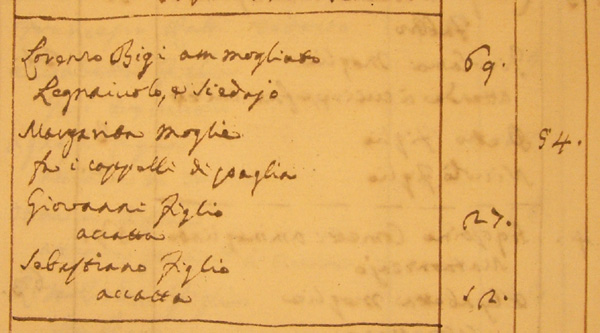 Lorenzo Bigi ammogliato 69.
Legnaiuolo, e Siedajo
Margarita Moglie 54.
fa i cappelli di paglia
Giovanni Figlio 27.
accatta
Sebastiano Figlio 12.
accatta